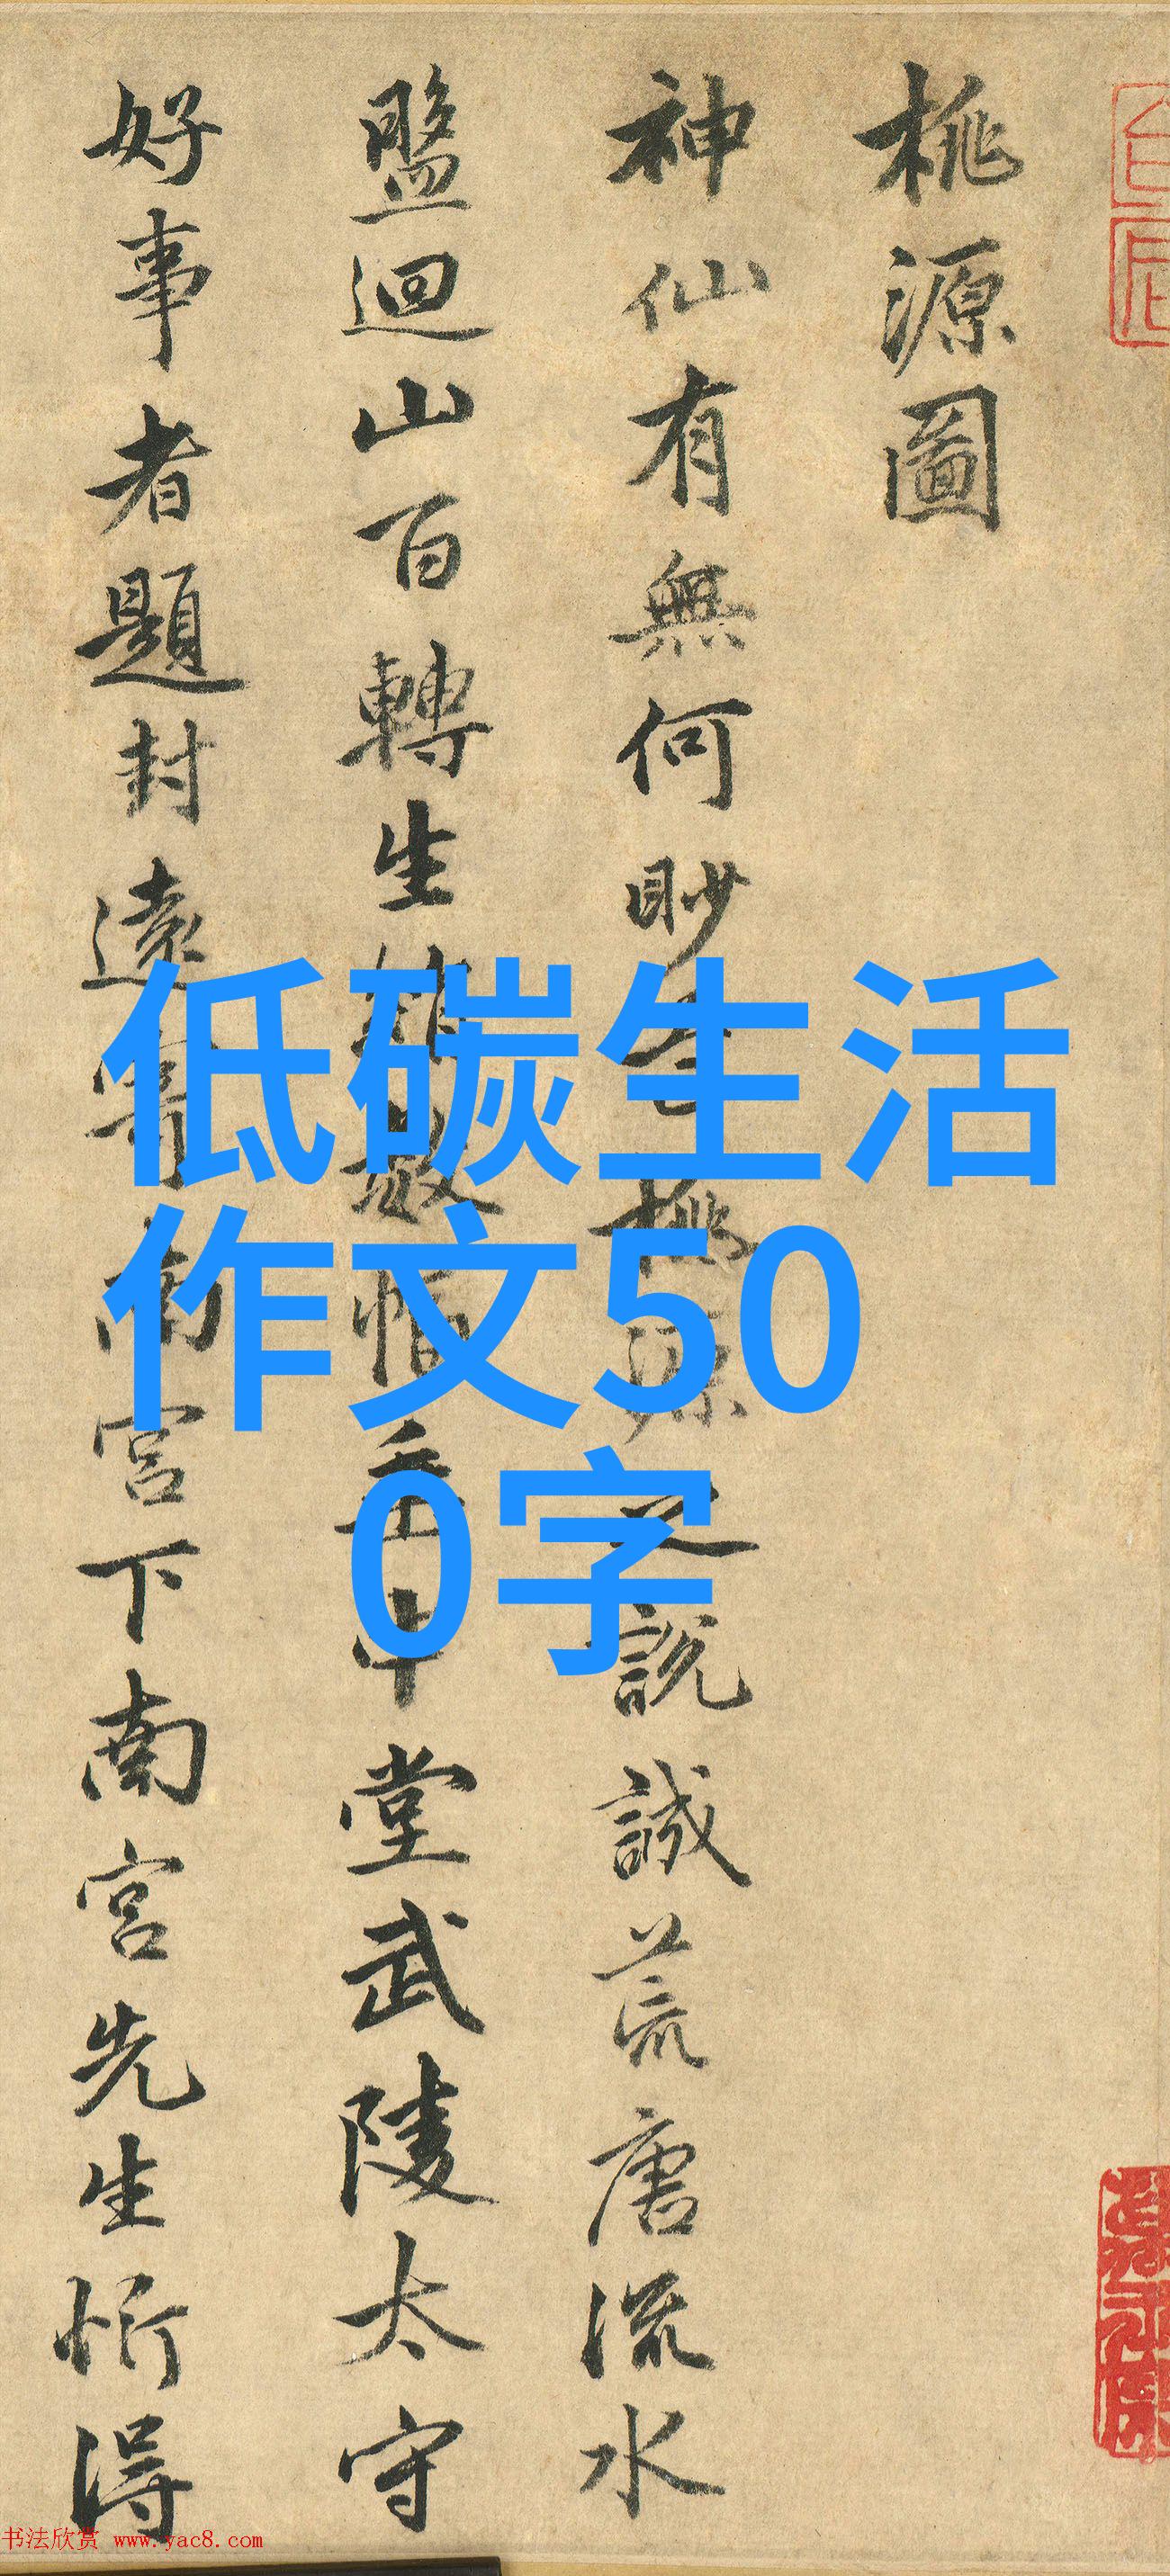 桃源圖
神仙有無何眇芒桃源之說誠荒唐流水
盤迴山百轉生綃數幅垂中堂武陵太守
好事者題封遠寄南宮下南宮先生忻得
低碳生活
作文50
0字
书法欣赏 www.yac8.com